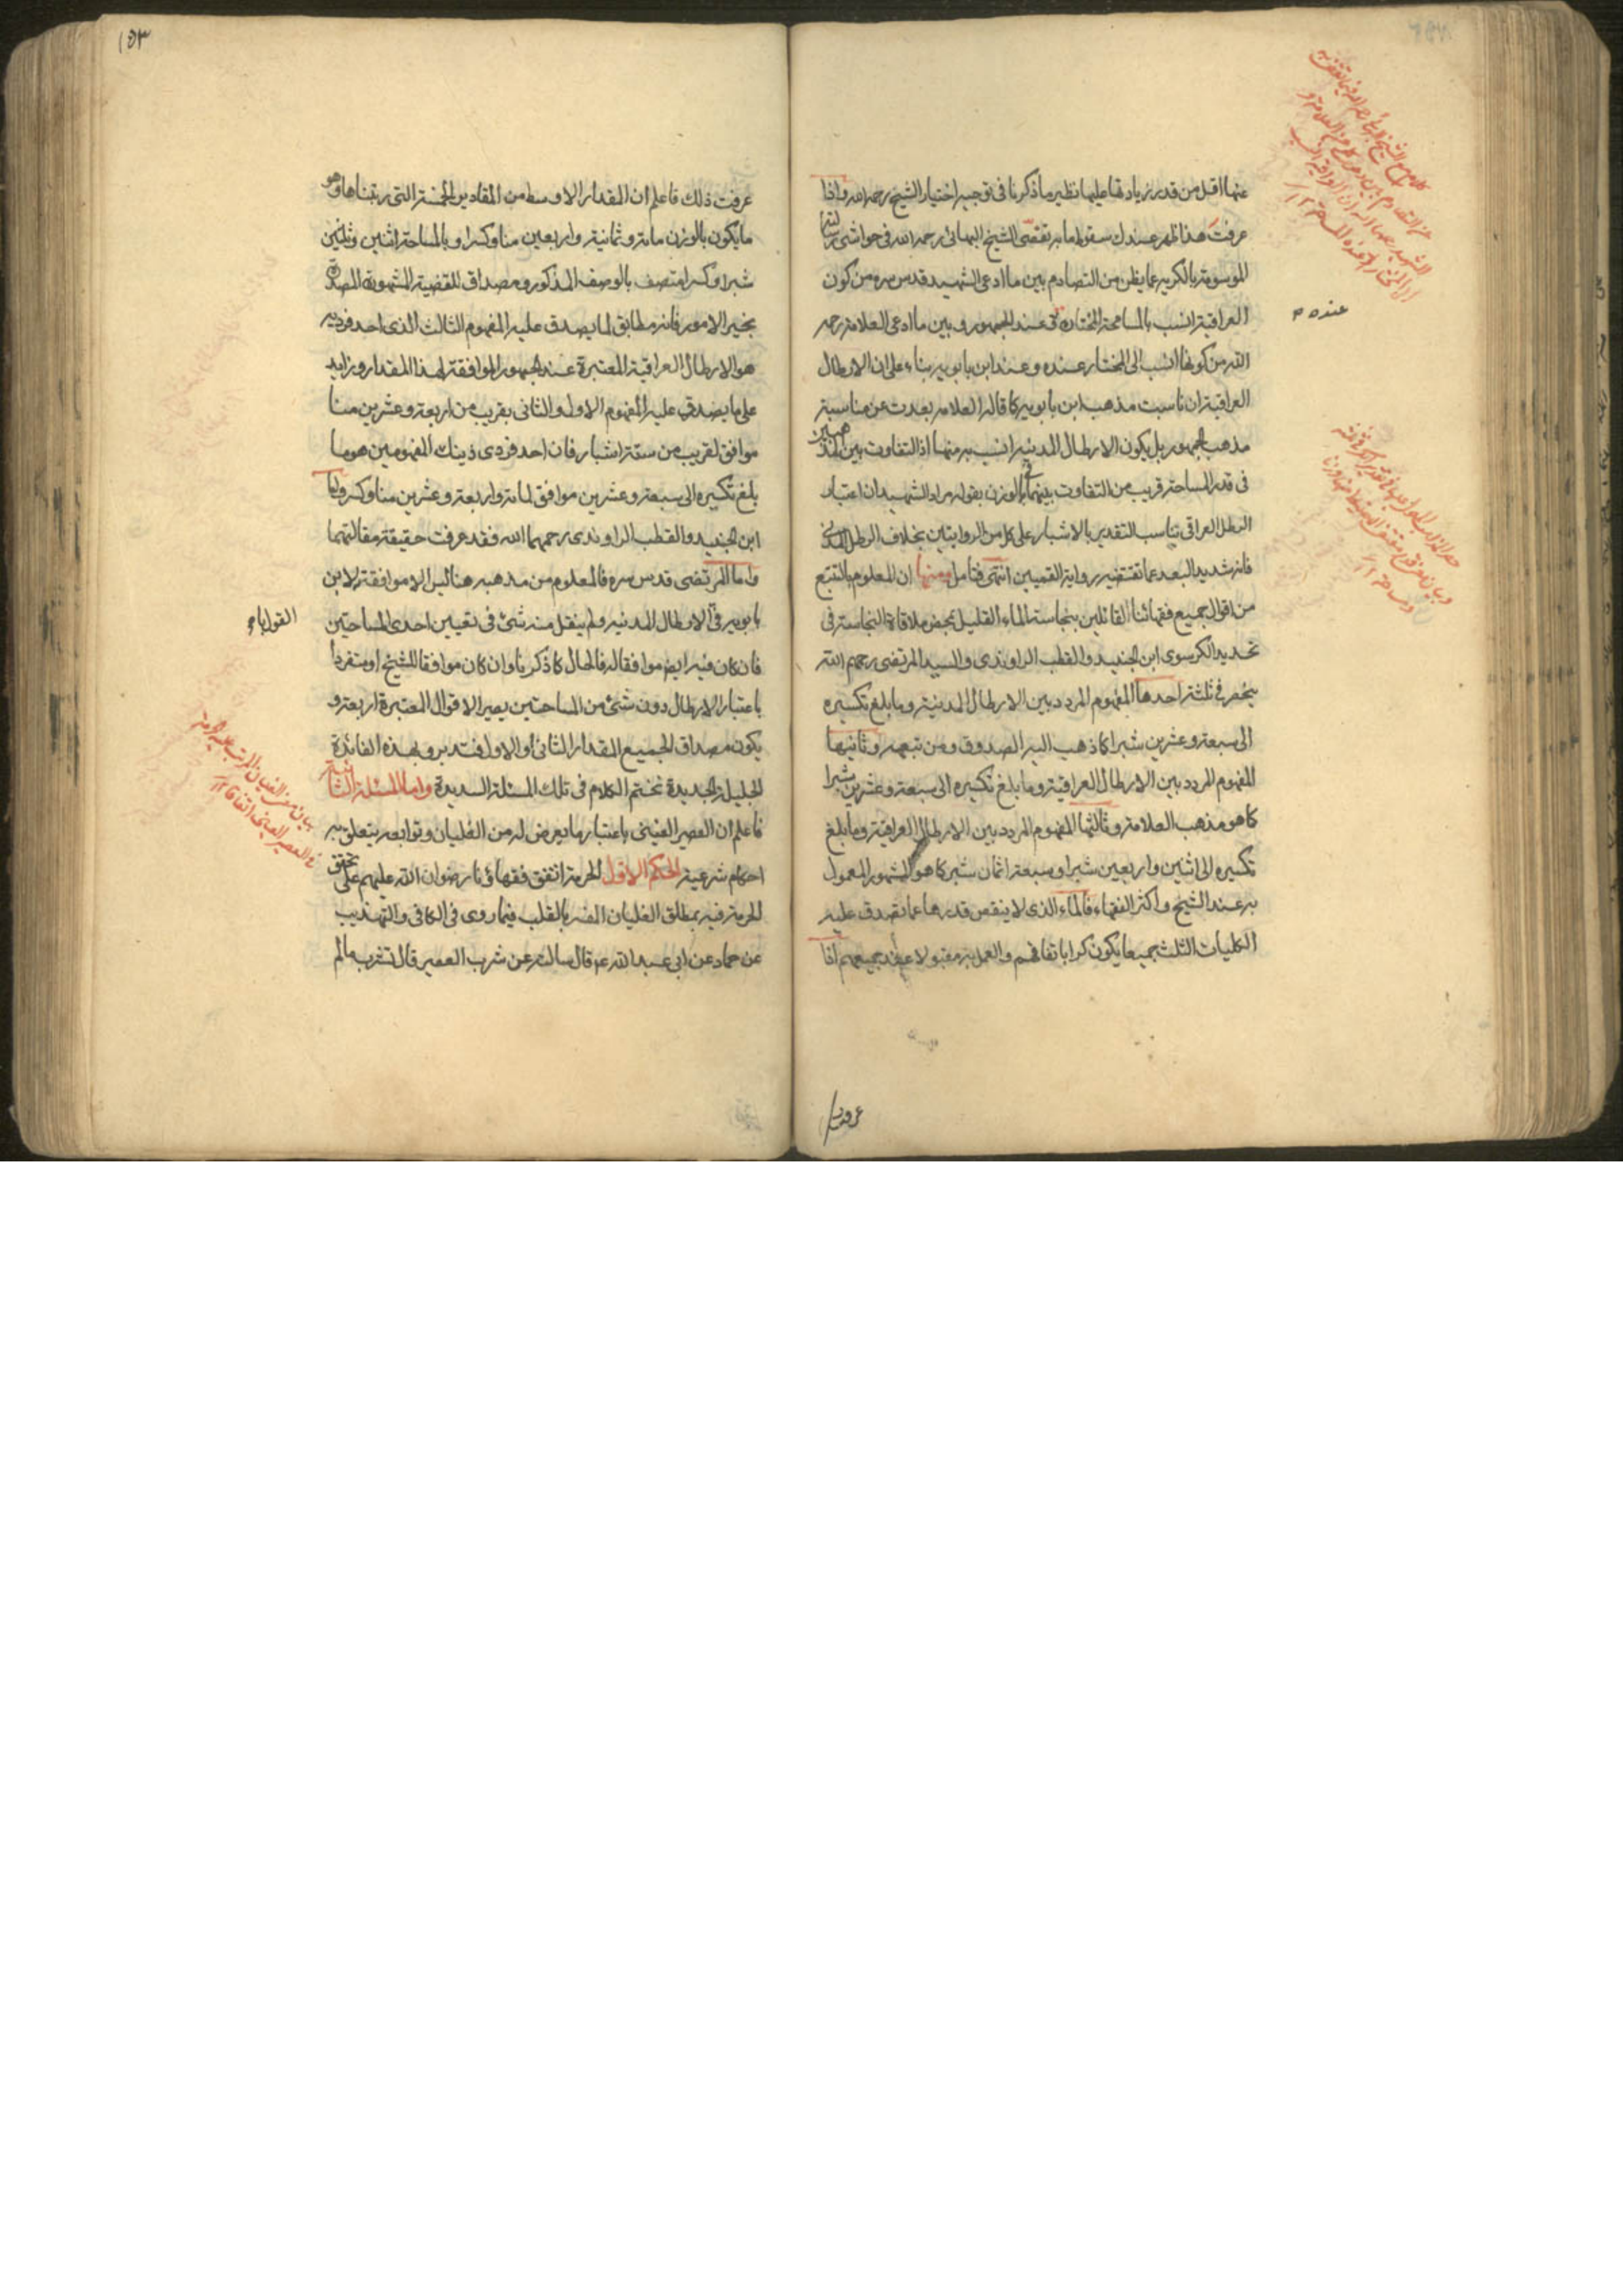 عنها اقل من قدر زيادتها عليها نظير ما ذكرنا فى توجيه اختيار الشيخ رحمه الله واذا
عرفت هذا ظهر عندك سقوط ما به تفصّى الشيخ البهائى رحمه الله فى حواشى رسالته
الموسومة بالكرية عما يظن من التصادم بين ما ادعى الشهيد قدس سره من كون
العراقية انسب بالمساحة المختارة عند الجمهور وبين ما ادعى العلامة رحمه
الله من كونها انسب الى المختار عنده وعند ابن بابويه بناء على ان الارطال
العراقية ان ناسبت مذهب ابن بابويه كما قاله العلامة بعدت عن مناسبة
مذهب الجمهور بل يكون الارطال المدنية انسب به منها اذ التفاوت بين المذهبين
فى قدر المساحة قريب من التفاوت بينهما فى الوزن بقوله مراد الشهيد ان اعتبار
الرطل العراقى يناسب التقدير بالاشبار على كل من الروايتين بخلاف الرطل المدنى
فانه شديد البعد عما تقتضيه رواية القميين انتهى فتامل ومنها ان المعلوم بالتتبع
من اقوال جميع فقهائنا القائلين بنجاسة الماء القليل بمحض ملاقاة النجاسة فى
تحديد الكر سوى ابن الجنيد والقطب الراوندى والسيد المرتضى رحمهم الله
ينحصر فى ثلثة احدها المفهوم المردد بين الارطال المدنية وما بلغ تكسيره
الى سبعة وعشرين شبرا كما ذهب اليه الصدوق ومن تبعه وثانيها
المفهوم المردد بين الارطال العراقية وما بلغ تكسيره الى سبعة وعشرين شبرا
كما هو مذهب العلامة وثالثها المفهوم المردد بين الارطال العراقية وما بلغ
تكسيره الى اثنين واربعين شبرا وسبعة اثمان شبر كما هو المشهور المعمول
به عند الشيخ واكثر الفقهاء فالماء الذى لا ينقص قدرها عما يصدق عليه
الكليات الثلث جميعا يكون كرا باتفاقهم والعمل به مقبولا عند جميعهم اذا
عنده
عرفت
١٥٣
عرفت ذلك فاعلم ان المقدار الاوسط من المقادير الخمسة التى رتبناها وهو
ما يكون بالوزن مائة وثمانية واربعين منا وكسرا وبالمساحة اثنين وثلثين
شبرا وكسرا متصف بالوصف المذكور ومصداق للقضية المشهورة المصدرة
بخير الامور فانه مطابق لما يصدق عليه المفهوم الثالث الذى احد فرديه
هو الارطال العراقية المعتبرة عند الجمهور الموافقة لهذا المقدار وزايد
على ما يصدق عليه المفهوم الاول والثانى بقريب من اربعة وعشرين منا
موافق لقريب من ستة اشبار فان احد فردى ذينك المفهومين هو ما
بلغ تكسيره الى سبعة وعشرين موافق لمائة واربعة وعشرين منا وكسر واما
ابن الجنيد والقطب الراوندى رحمهما الله فقد عرفت حقيقة مقالتهما
واما المرتضى قدس سره فالمعلوم من مذهبه هنا ليس الا موافقته لابن
بابويه فى الارطال المدنية ولم ينقل منه شئ فى تعيين احدى المساحتين
فان كان فيه ايضا موافقا له فالحال كما ذكرنا وان كان موافقا للشيخ او متفردا
باعتبار الارطال دون شئ من المساحتين يصير الاقوال المعتبرة اربعة و
يكون مصداق الجميع المقدار الثانى او الاول فتدبر وبهذه الفائدة
الجليلة الجديدة نختم الكلام فى تلك المسئلة السديدة واما المسئلة الثانية
فاعلم ان العصير العنبى باعتبار ما يعرض له من الغليان وتوابعه يتعلق به
احكام شرعية الحكم الاول الحرمة اتفق فقهاؤنا رضوان الله عليهم على تحقق
الحرمة فيه بمطلق الغليان المفسر بالقلب فيما روى فى الكافى والتهذيب
عن حماد عن ابى عبد الله ع قال سالته عن شرب العصير قال تشرب ما لم
بيان معنى الغليان المرتب عليه الحرمة
فى العصير العنبى اتفاقا